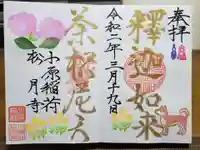 奉拝
釋迦如来
令和二年三月十九日
茶枳尼天
小原稲荷
松月寺